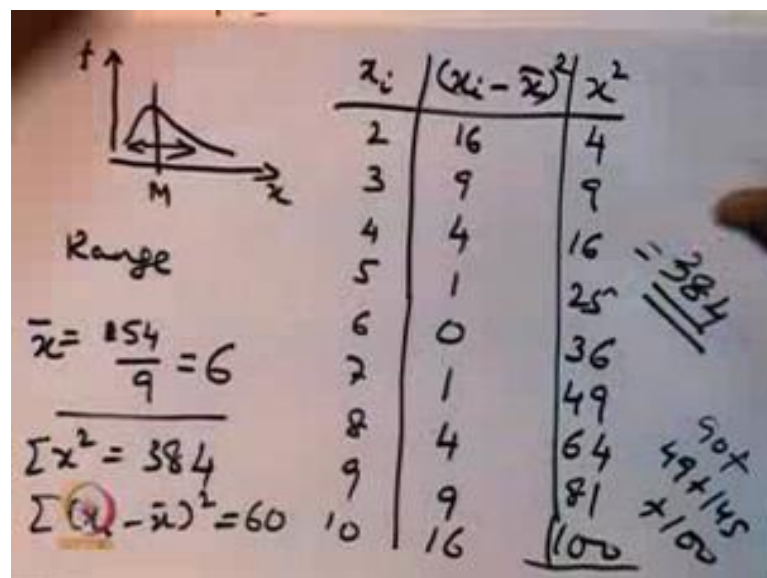 f
M
x
Range
x̄ = 154/9 = 6
Σx² = 384
Σ(xᵢ - x̄)² = 60
xᵢ | (xᵢ - x̄)² | x²
2 | 16 | 4
3 | 9 | 9
4 | 4 | 16
5 | 1 | 25
6 | 0 | 36
7 | 1 | 49
8 | 4 | 64
9 | 9 | 81
10 | 16 | 100
= 384
90+
49+145
+100